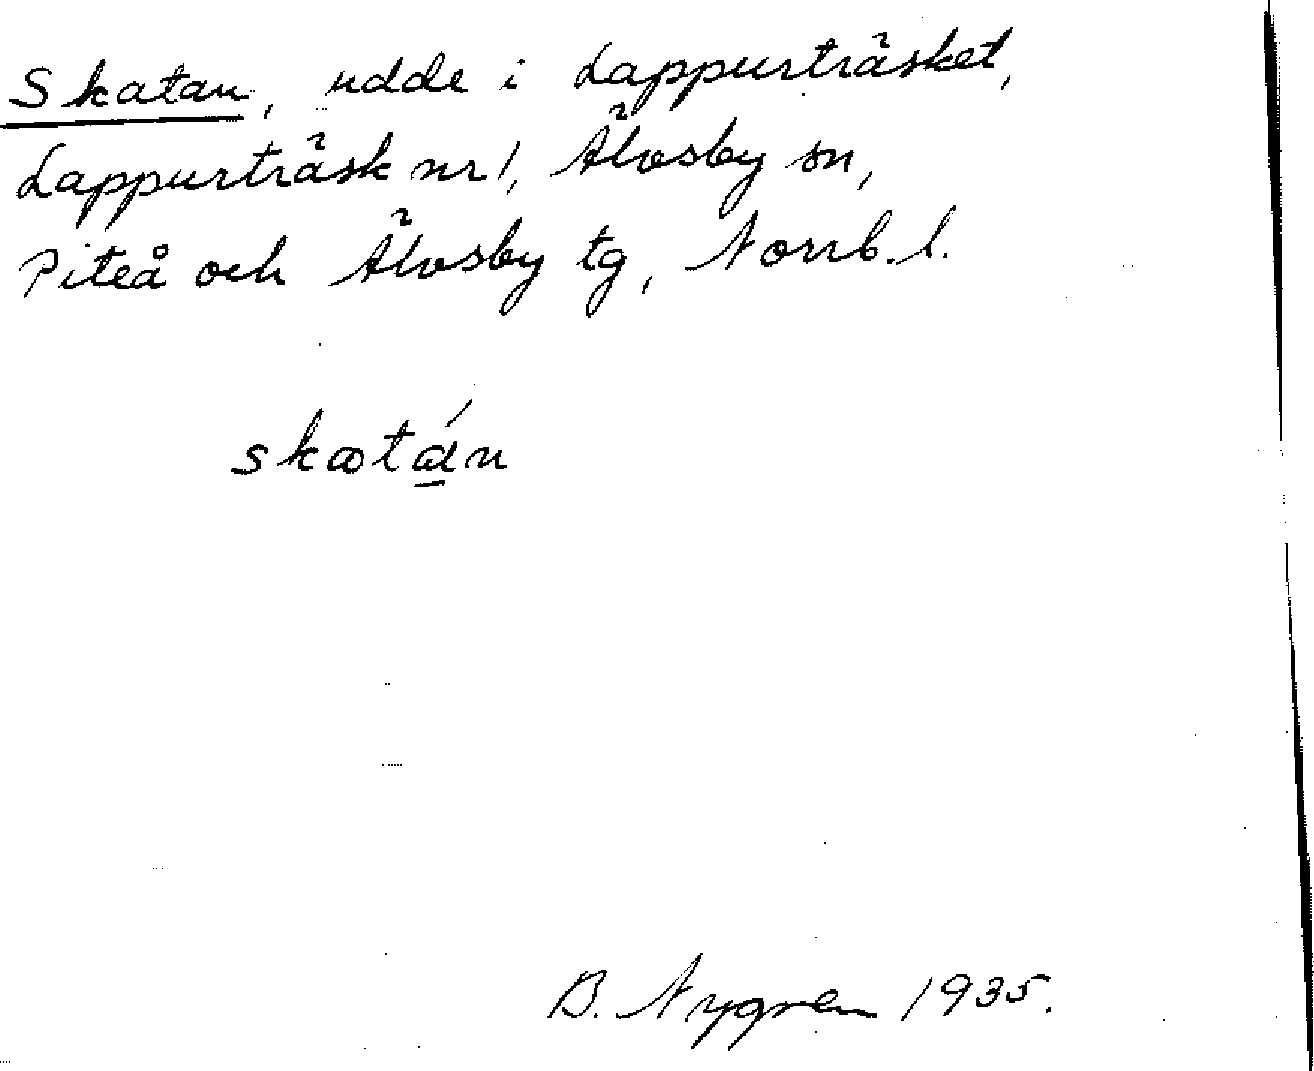 Skatan, udde i Lappurträsket,
Lappurträsk nr 1, Älvsby sn,
Piteå och Älvsby tg, Norrb. l.
skatán
B. Nygren 1935.